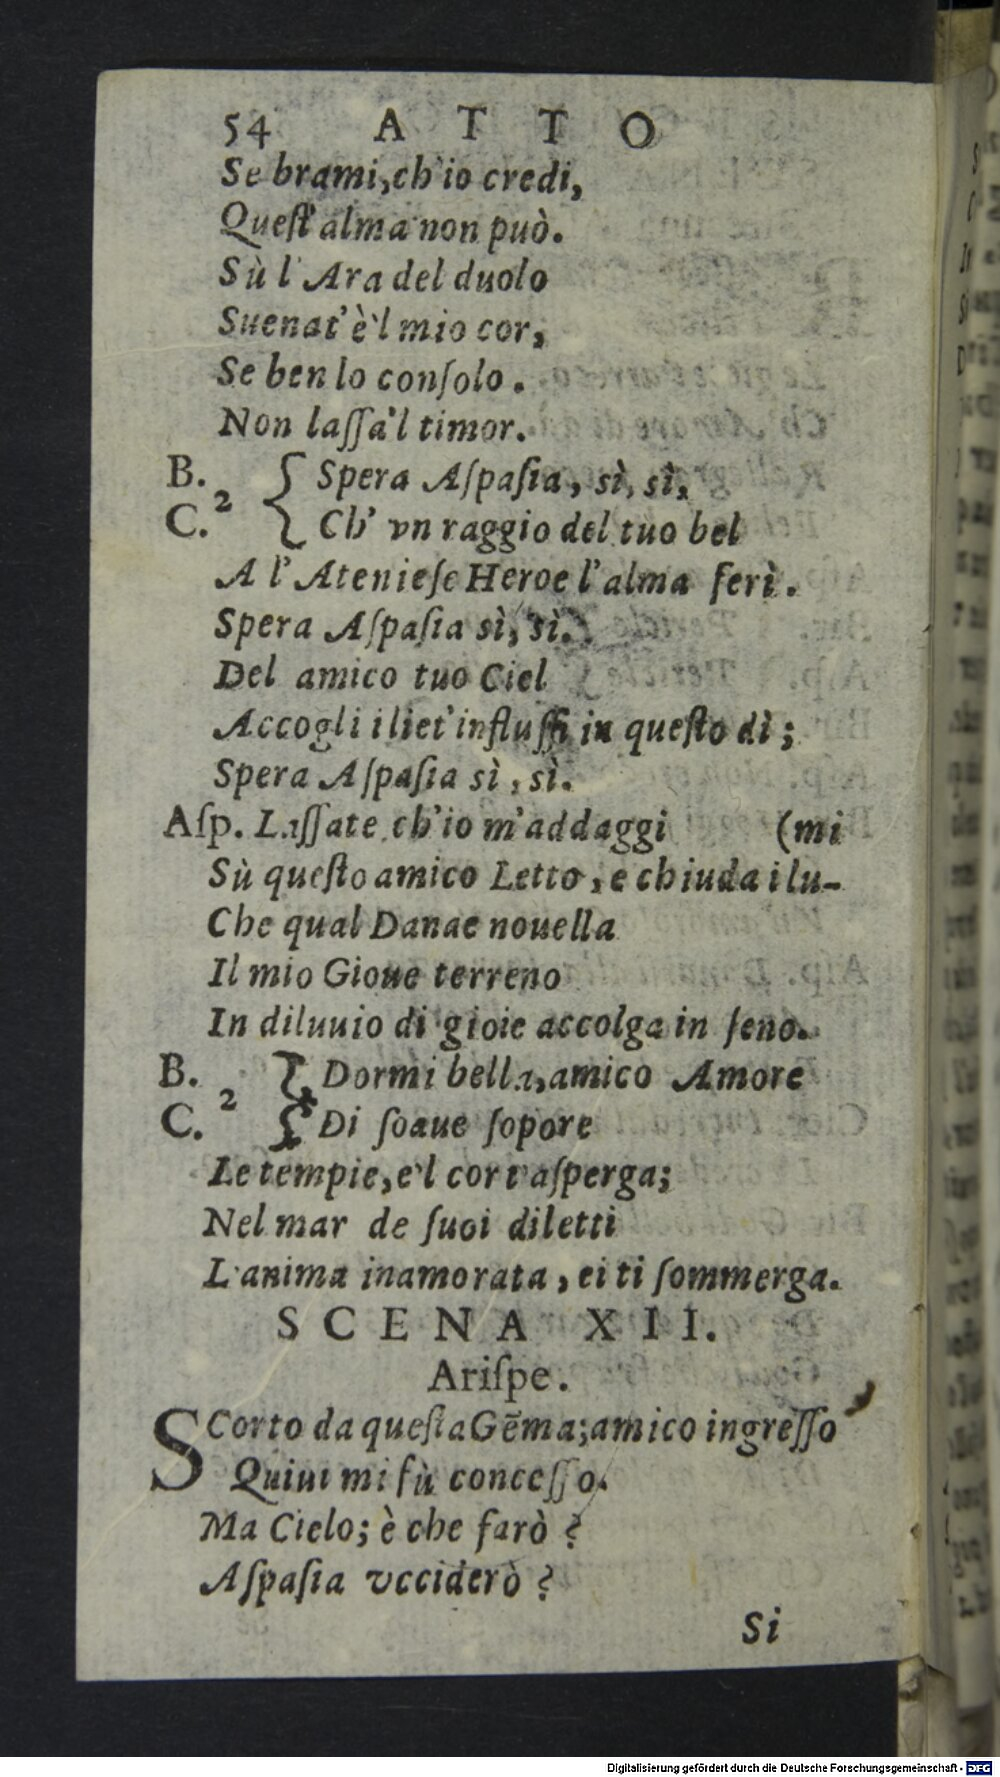 54 ATTO
Se brami, ch'io credi,
Quest' alma non può.
Sù l'Ara del duolo
Suenat' è 'l mio cor,
Se ben lo conſolo.
Non laſſa 'l timor.
B. Spera Aſpaſia, sì, sì,
C. 2 Ch' vn raggio del tuo bel
A l'Atenieſe Heroe l'alma ferì.
Spera Aſpaſia sì, sì.
Del amico tuo Ciel
Accogli i liet' influſſi in queſto dì;
Spera Aſpaſia sì, sì.
Aſp. Laſſate ch'io m'addaggi (mi
Sù queſto amico Letto, e chiuda i lu-
Che qual Danae nouella
Il mio Gioue terreno
In diluuio di gioie accolga in ſeno.
B. Dormi bella, amico Amore
C. 2 Di ſoaue ſopore
Le tempie, e'l cor t'aſperga;
Nel mar de ſuoi diletti
L'anima inamorata, ei ti ſommerga.
SCENA XII.
Ariſpe.
SCorto da queſta Gēma; amico ingreſſo
Quiui mi fù conceſſo.
Ma Cielo; è che farò?
Aſpaſia vcciderò?
Si
Digitalisierung gefördert durch die Deutsche Forschungsgemeinschaft - DFG